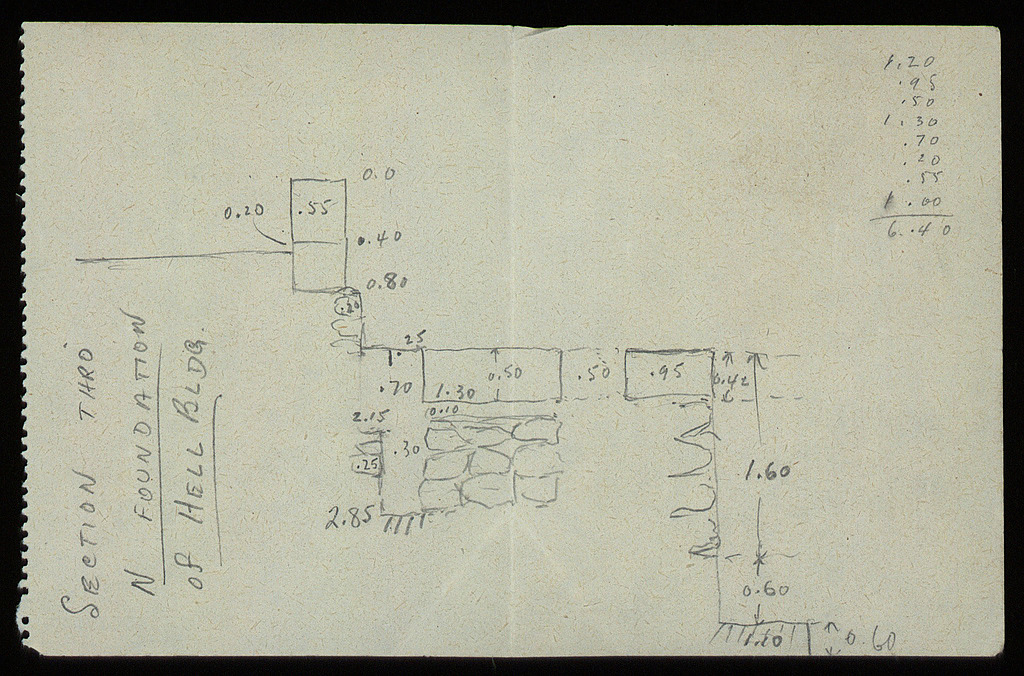 SECTION THRO
N FOUNDATION
OF HELL BLDG.
1.20
.95
.50
1.30
.70
.20
.55
1.00
6.40
0.0
0.20
.55
0.40
0.80
.20
.25
.70
1.30
0.50
.50
.95
0.42
2.15
0.10
.30
.25
1.60
2.85
0.60
1.20
0.60